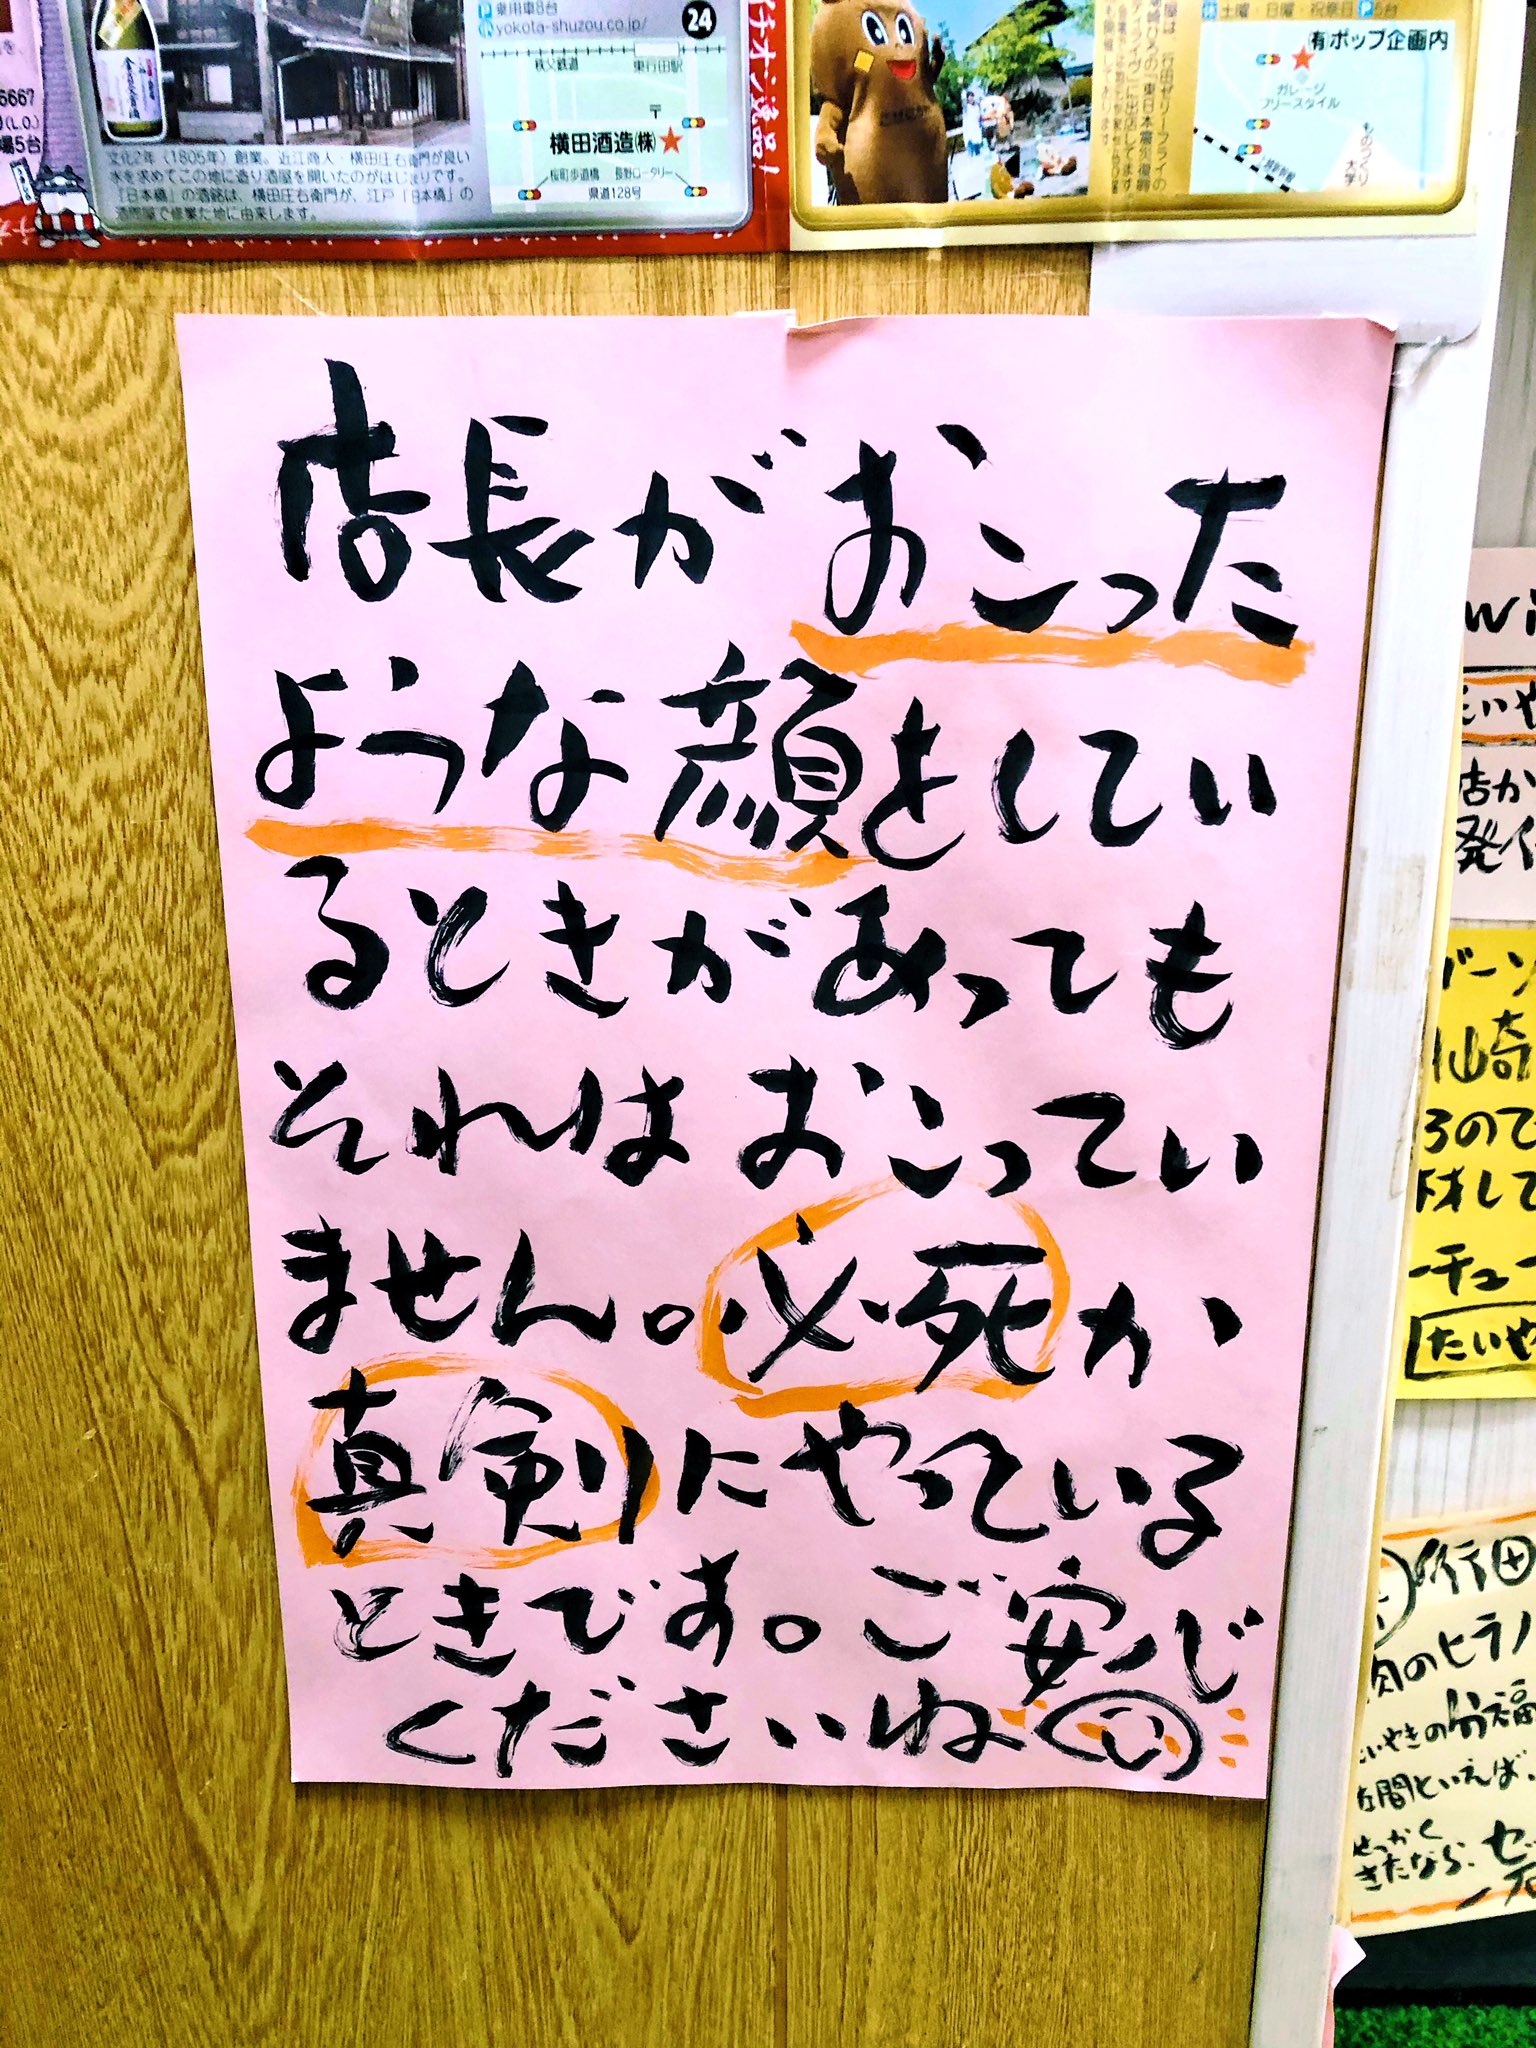 乗用車8台
yokota-shuzou.co.jp/
24
秩父鉄道
東行田駅
横田酒造㈱
桜町歩道橋
長野ロータリー
県道128号
文化2年（1805年）創業。近江商人・横田庄右衛門が良い
水を求めてこの地に造り酒屋を開いたのがはじまりです。
「日本橋」の酒銘は、横田庄右衛門が、江戸「日本橋」の
酒問屋で修業した地に由来します。
6667
(L.O.)
場5台
土曜・日曜・祝祭日 P5台
㈲ポップ企画内
ガレージ
フリースタイル
ものつくり
大学
店長がおこった
ような顔をしてい
るときがあっても
それはおこってい
ません。必死か
真剣にやっている
ときです。ご安心
くださいね
行田
肉のヒラノ
いやきの分福
せっかく
きたなら、セ